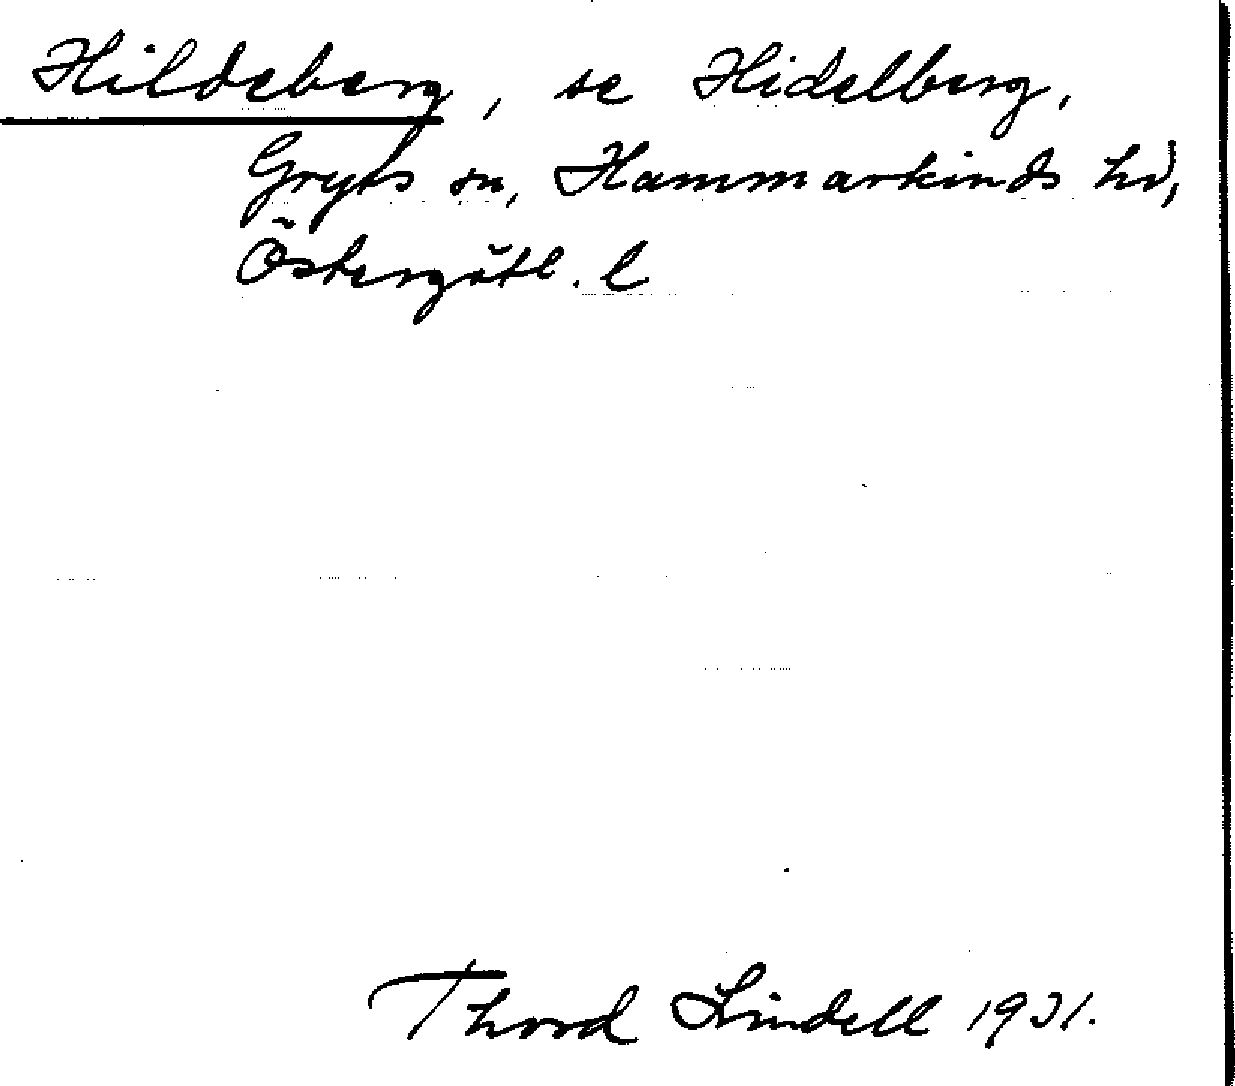 Hildeberg, se Hidelberg,
Gryts sn, Hammarkinds hd,
Östergötl. l
Thord Lindell 1931.